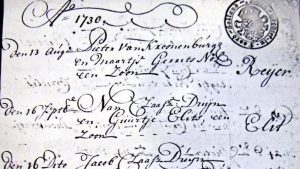 Ao 1730
den 13 Augs Pieter van Kroonenburg
en Maartje Gerrits Nol
een Zoon Reijer
den 16 Septb Nan Claasz Duijn
en Guurtje Elits, een
Zoon Elit
den 16 Dito Jacob Claasz Duijn